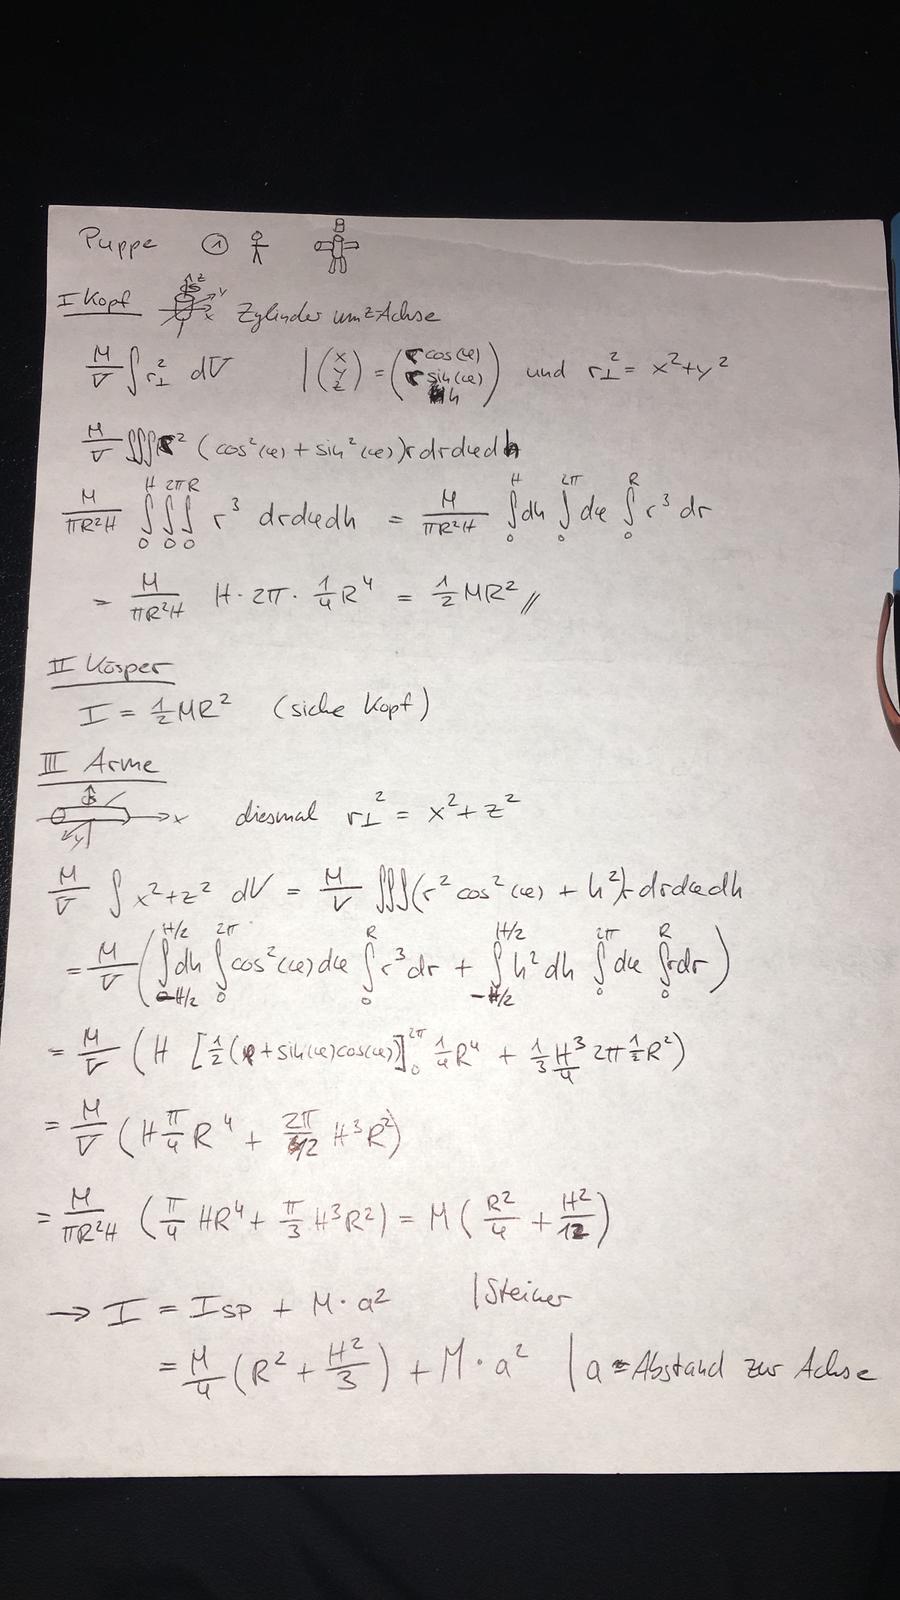 Puppe ①
I Kopf z y x Zylinder um z Achse
M/V ∫ r⊥² dV | (x y z) = (r cos(φ) r sin(φ) h) und r⊥² = x²+y²
M/V ∭ r² (cos²(φ) + sin²(φ)) r dr dφ dh
M/πR²H ∫₀ᴴ ∫₀²π ∫₀ᴿ r³ dr dφ dh = M/πR²H ∫₀ᴴ dh ∫₀²π dφ ∫₀ᴿ r³ dr
= M/πR²H H · 2π · 1/4 R⁴ = 1/2 MR² //
II Körper
I = 1/2 MR² (siehe Kopf)
III Arme
x y diesmal r⊥² = x²+z²
M/V ∫ x²+z² dV = M/V ∭ (r² cos²(φ) + h²) r dr dφ dh
= M/V (∫₋H/2^H/2 dh ∫₀²π cos²(φ) dφ ∫₀ᴿ r³ dr + ∫₋H/2^H/2 h² dh ∫₀²π dφ ∫₀ᴿ r dr)
= M/V (H [1/2 (φ + sin(φ) cos(φ))]₀²π 1/4 R⁴ + 1/3 H³/4 2π 1/2 R²)
= M/V (H π/4 R⁴ + 2π/12 H³R²)
= M/πR²H (π/4 HR⁴ + π/3 H³R²) = M (R²/4 + H²/12)
→ I = I_SP + M · a² | Steiner
= M/4 (R² + H²/3) + M · a² | a = Abstand zur Achse